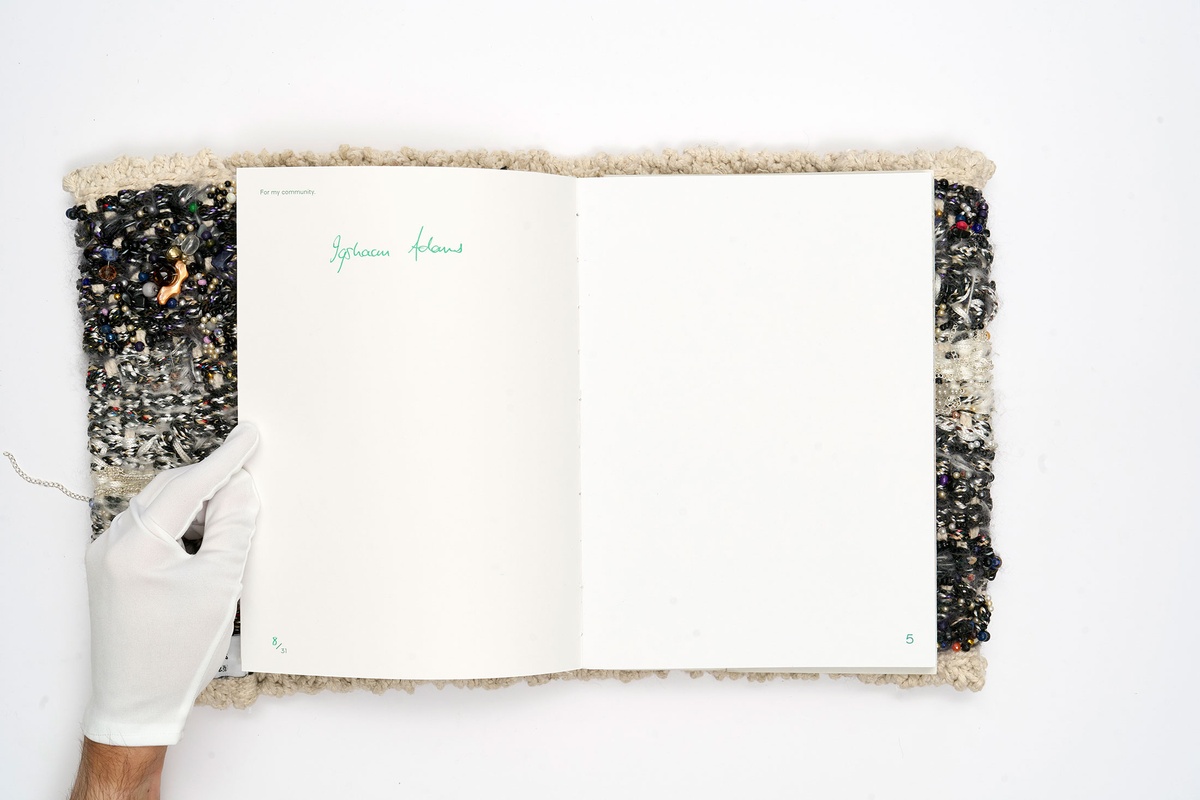 For my community.
Igshaan Adams
8/31
5